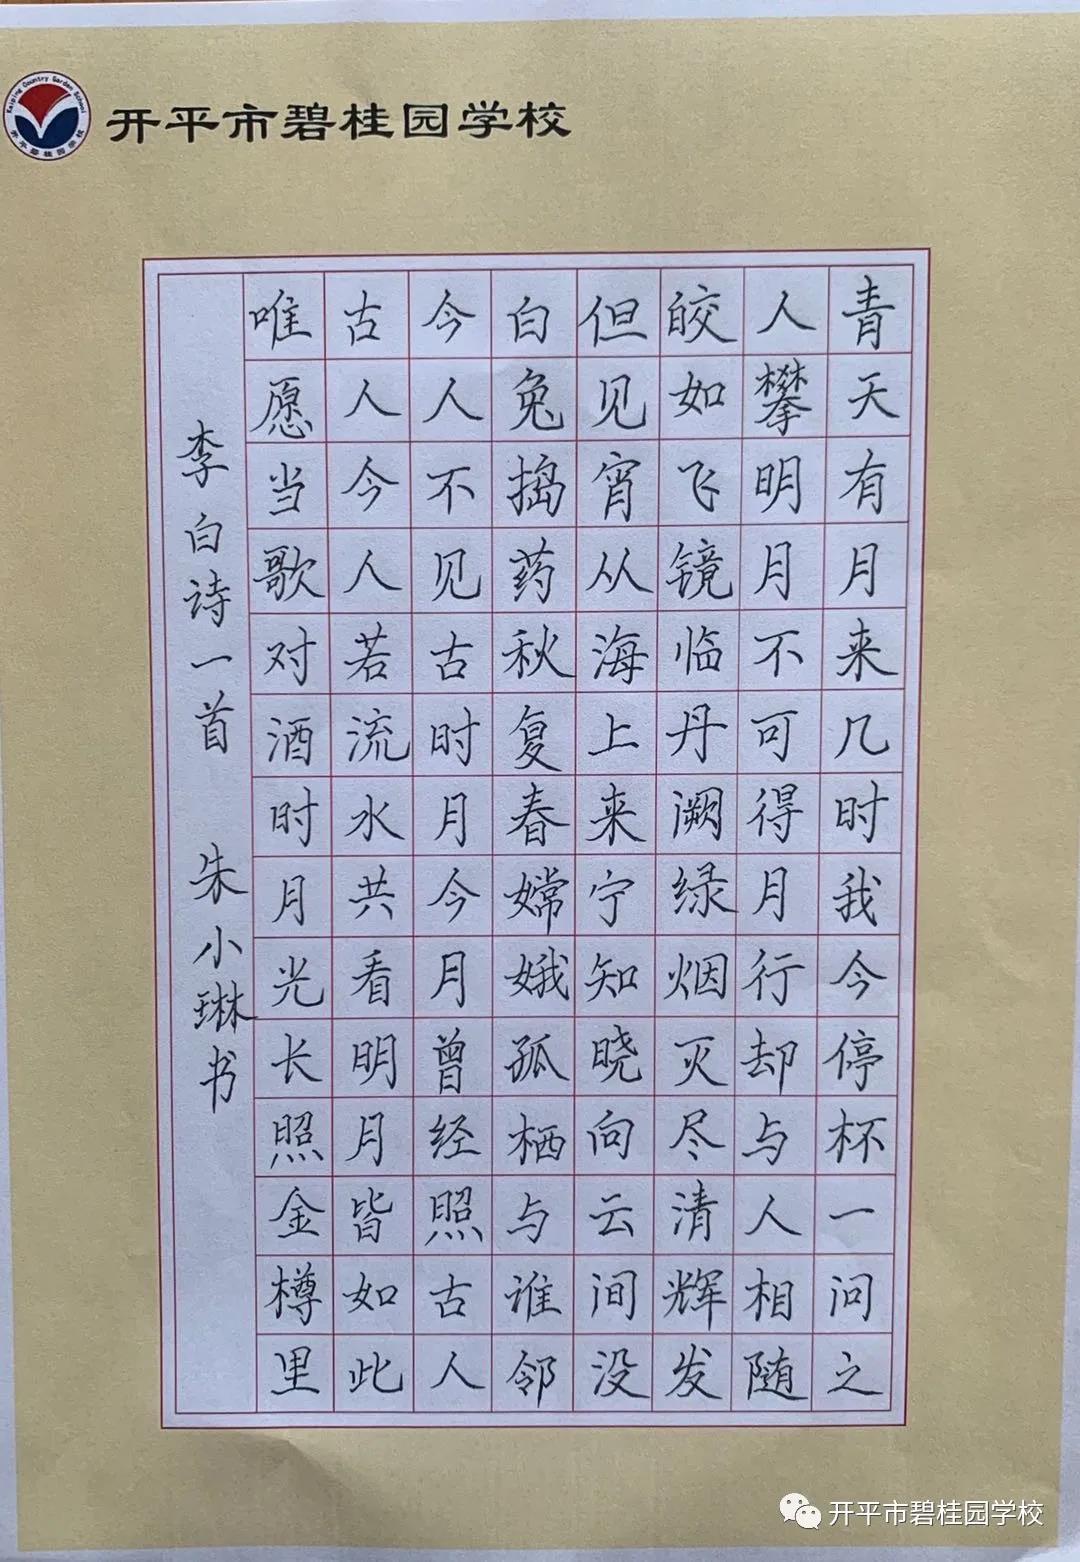 Kaiping Country Garden School
开平碧桂园学校
开平市碧桂园学校
青天有月来几时我今停杯一问之
人攀明月不可得月行却与人相随
皎如飞镜临丹阙绿烟灭尽清辉发
但见宵从海上来宁知晓向云间没
白兔捣药秋复春嫦娥孤栖与谁邻
今人不见古时月今月曾经照古人
古人今人若流水共看明月皆如此
唯愿当歌对酒时月光长照金樽里
李白诗一首 朱小琳书
开平市碧桂园学校